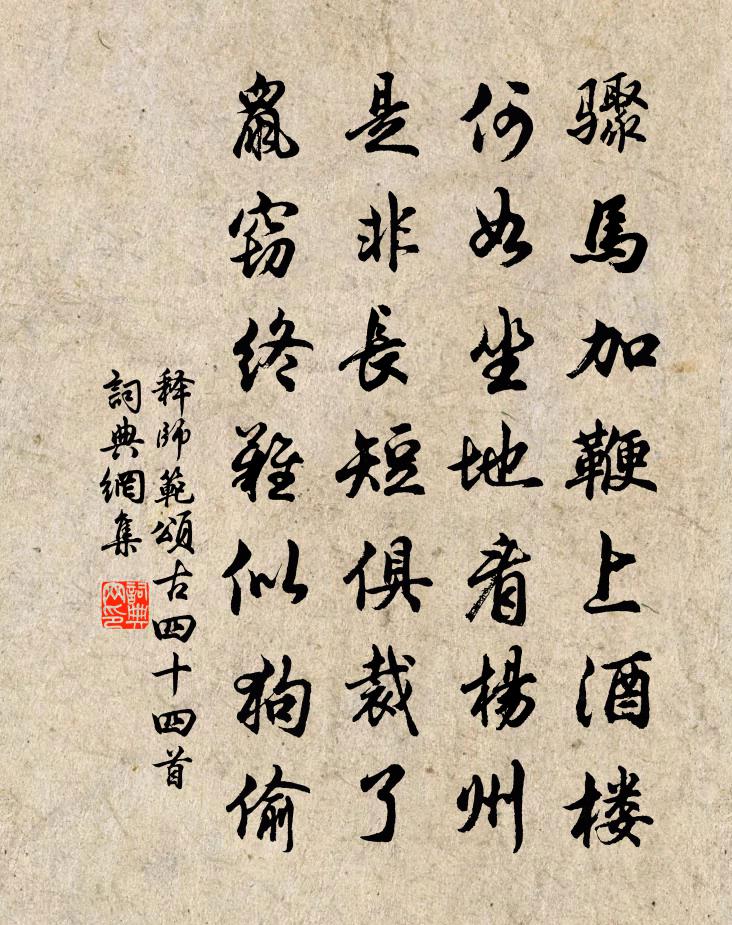 骤馬加鞭上酒楼
何如坐地看楊州
是非長短俱裁了
鼠窃終難似狗偷
释師範頌古四十四首
詞典網集
詞典网印